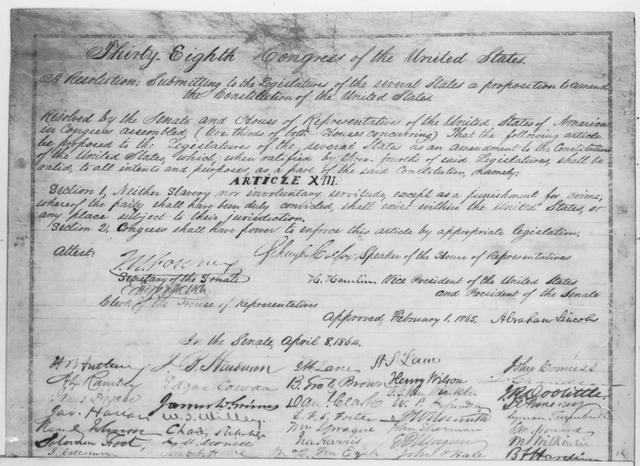 Thirty-Eighth Congress of the United States.
A Resolution; Submitting to the Legislatures of the several States a proposition to amend
the Constitution of the United States.
Resolved by the Senate and House of Representatives of the United States of America
in Congress assembled, (two thirds of both Houses concurring) That the following article
be proposed to the Legislatures of the several States as an amendment to the Constitution
of the United States, which, when ratified by three fourths of said Legislatures, shall be
valid, to all intents and purposes, as a part of the said Constitution, namely;
ARTICLE XIII.
Section 1, Neither Slavery nor involuntary servitude, except as a punishment for crime;
whereof the party shall have been duly convicted, shall exist within the United States, or
any place subject to their jurisdiction.
Section 2, Congress shall have power to enforce this article by appropriate legislation.
Attest;
Schuyler Colfax, Speaker of the House of Representatives
J. W. Forney
Secretary of the Senate
H. Hamlin Vice President of the United States
and President of the Senate
Clerk of the House of Representatives
Approved, February 1, 1865. Abraham Lincoln
In the Senate, April 8, 1864.
J. B. Henderson
H S Lane
John Conness
Edgar Cowan
B. Gratz Brown
Henry Wilson
James W. Grimes
Danl Clark
J R Doolittle
Jas. Harlan
W. T. Willey
Lyman Trumbull
Chas. Sumner
Wm Sprague
John Sherman
Solomon Foot,
Ira Harris
E D Morgan
M Wilkinson
J. Collamer
Ten Eyck
John P Hale